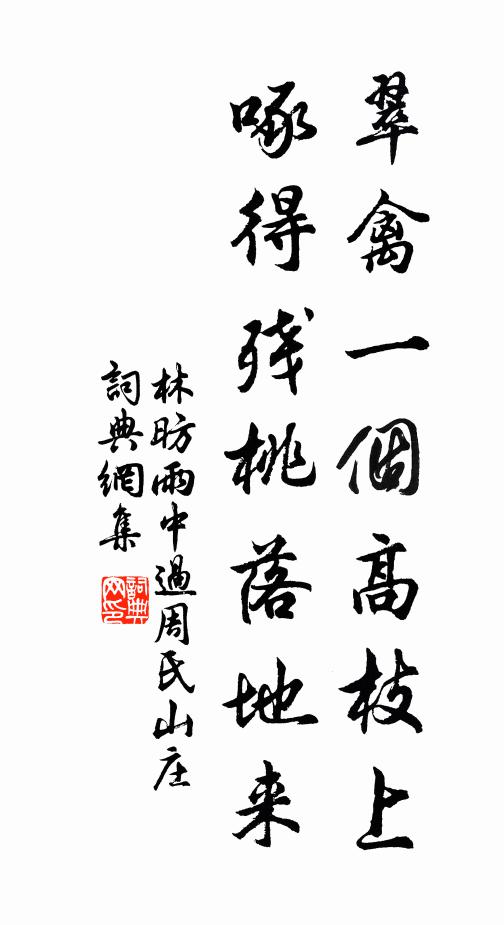 翠禽一個高枝上
啄得残桃落地来
林昉雨中過周氏山庄
詞典網集
詞典网印